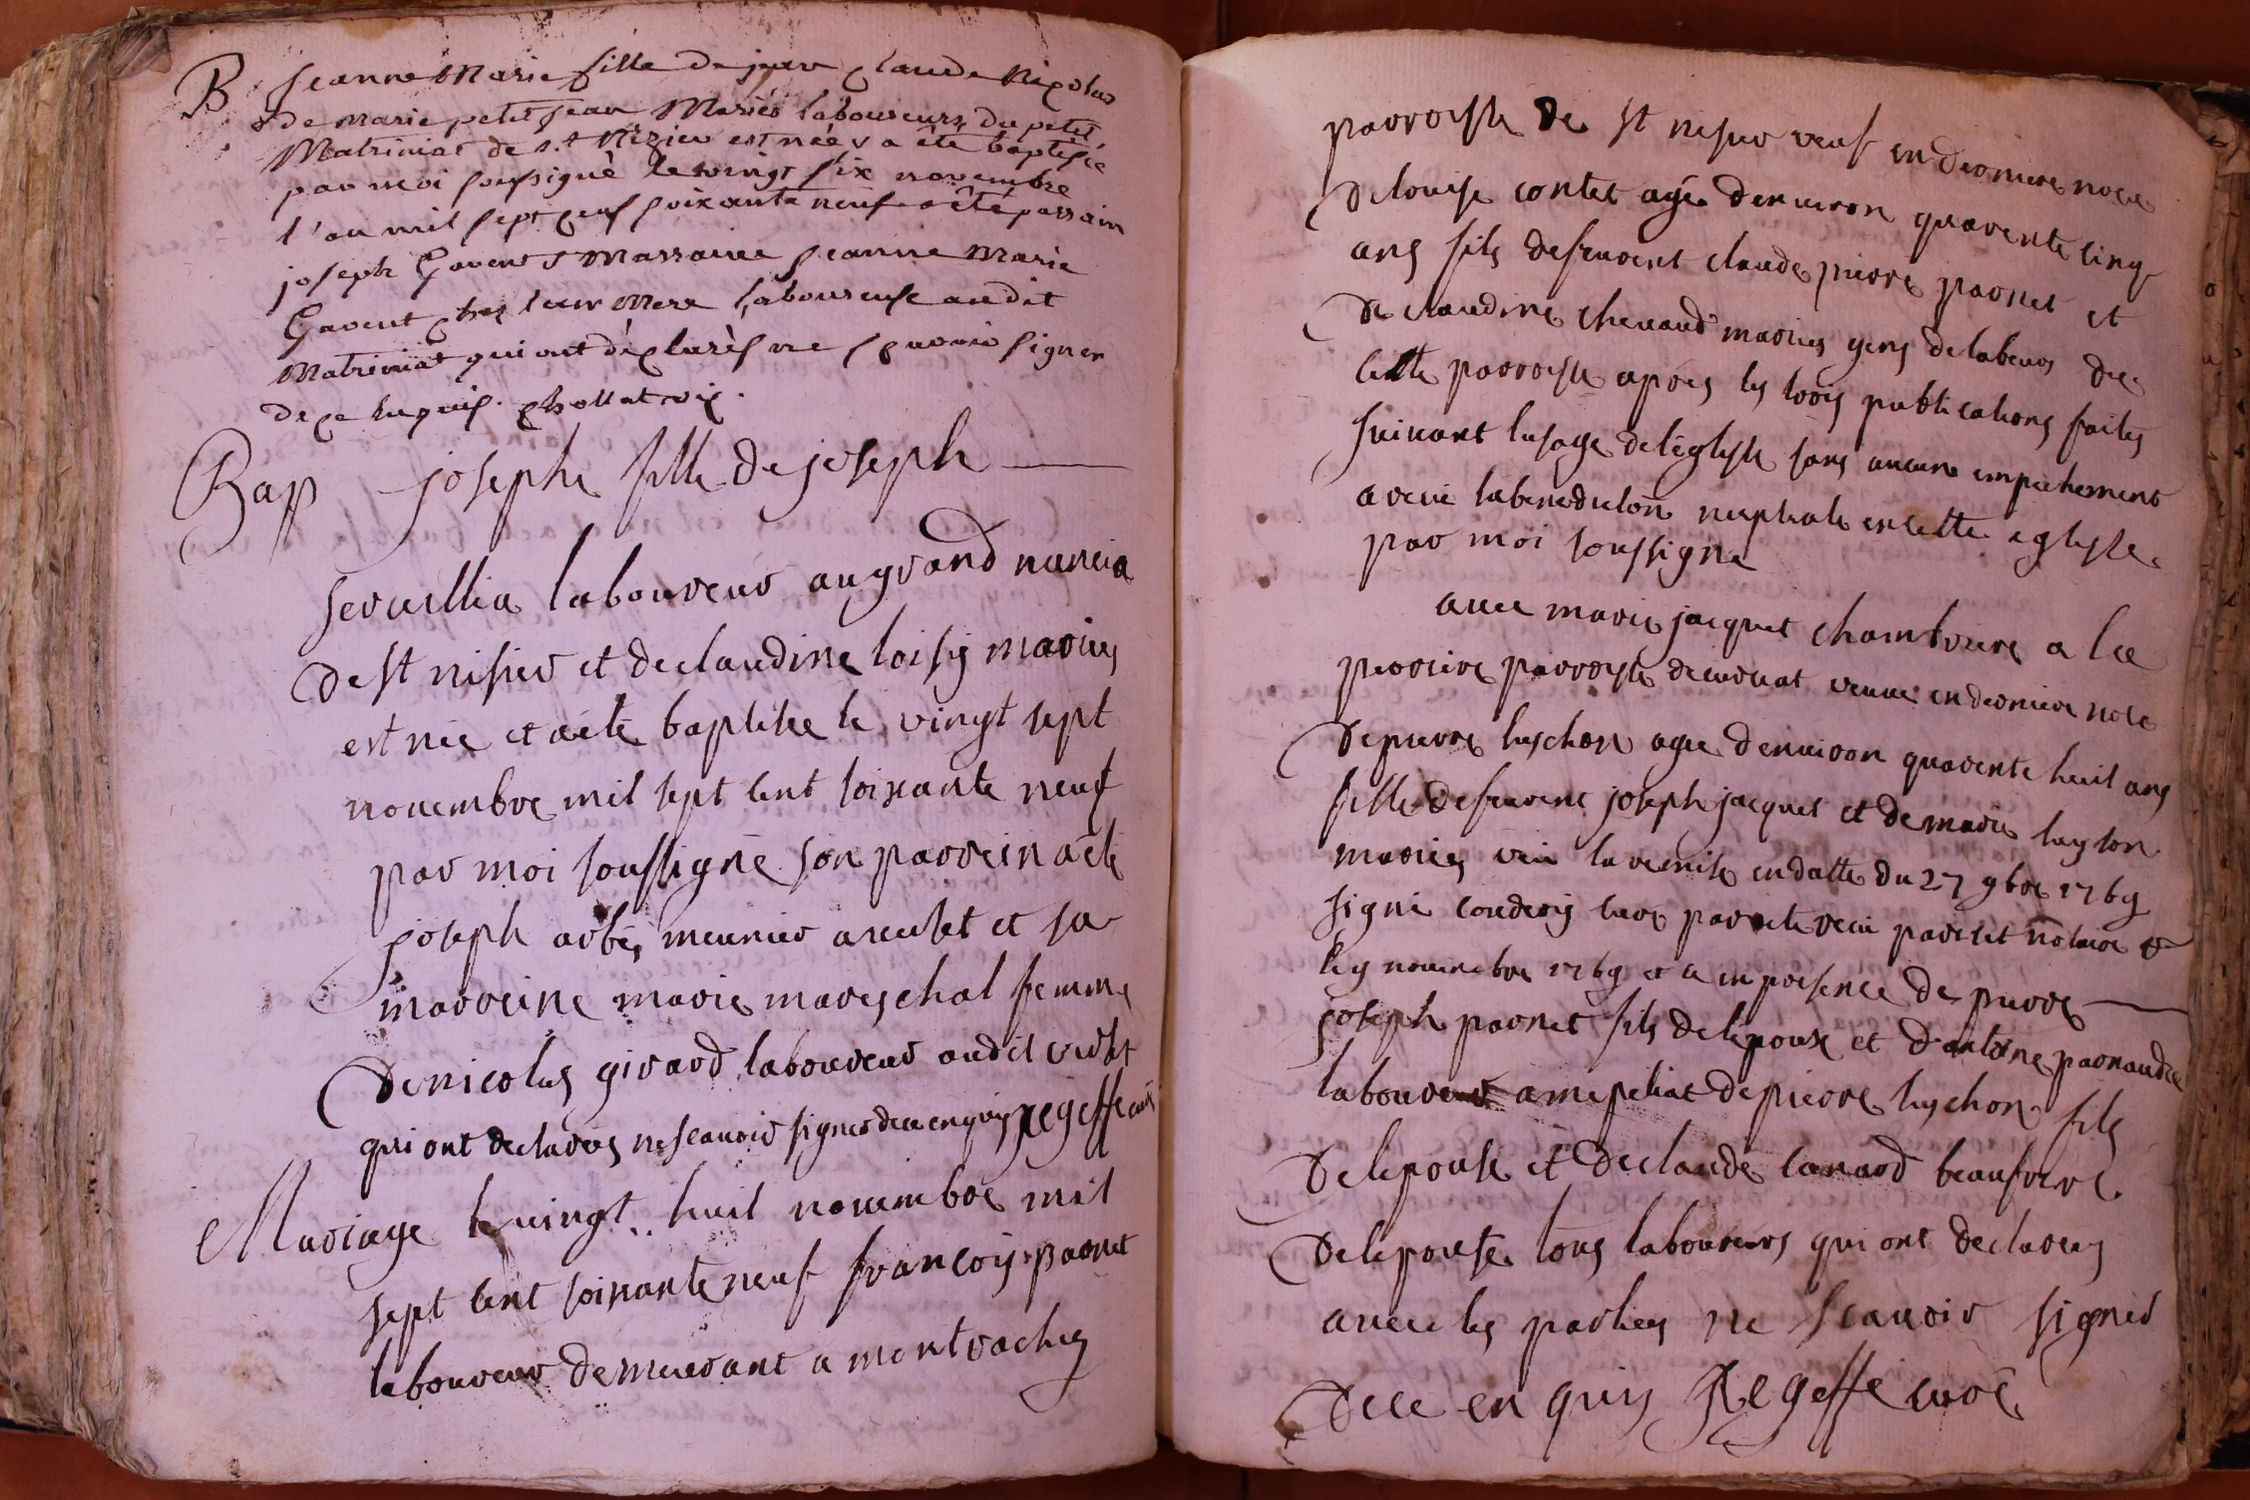 B Jeanne Marie fille de jean Claude Nicolas
& de marie petitjean Mariés laboureurs du petit
Matriniat de s.t Nizier est née & a été baptisée
par moi soussigné le vingt six novembre
l'an mil sept cens soixante neuf a été parrain
joseph Gavent & marraine jeanne marie
Gavent chez leur mere laboureuse audit
Matriniat qui ont déclarés ne sçavoir signer
de ce enquis. chollat vic.
Bap josephe fille de joseph
servillia laboureur au grand nancia
de st nisier et de claudine loisy mariés
est née et a été baptisée le vingt sept
novembre mil sept cent soixante neuf
par moi soussigné son parrein a été
joseph arbés meunier a reculet et sa
marreine marie mareschal femme
de nicolas girard laboureur audit
qui ont declarés ne scavoir signer de ce enquis Regeffe curé
Mariage le vingt huit novembre mil
sept cent soixante neuf françois parnet
laboureur demeurant a montrachy
parroisse de st nisier veuf en derniere noce
de louise contet agé denviron quarente cinq
ans fils defeuvent claude pierre parnet et
de claudine chevaud mariés gens de labeur de
cette parroisse apres les trois publications faites
suivant lusage de léglise sans aucun empechement
a receu la benediction nuptiale en cette eglise
par moi soussigné
avec marie jacquet chambriere a la
perriere parroisse de curciat veuve en derniere noce
de pierre luschon agée denviron quarente huit ans
fille defeuvent joseph jacquet et de marie luyson
mariés veu la remise en datte du 27 9bre 1769
signé couderoy curé par acte receu notaire
le 9 novembre 1769 et a en presence de pierre
joseph parnet fils de lepoux et d'antoine parnaudet
laboureur a mepiliat de pierre luschon fils
de lepouse et de claude canard beaufrere
de lepouse tous laboureurs qui ont declarés
avec les parties ne scavoir signer
de ce enquis Regeffe curé